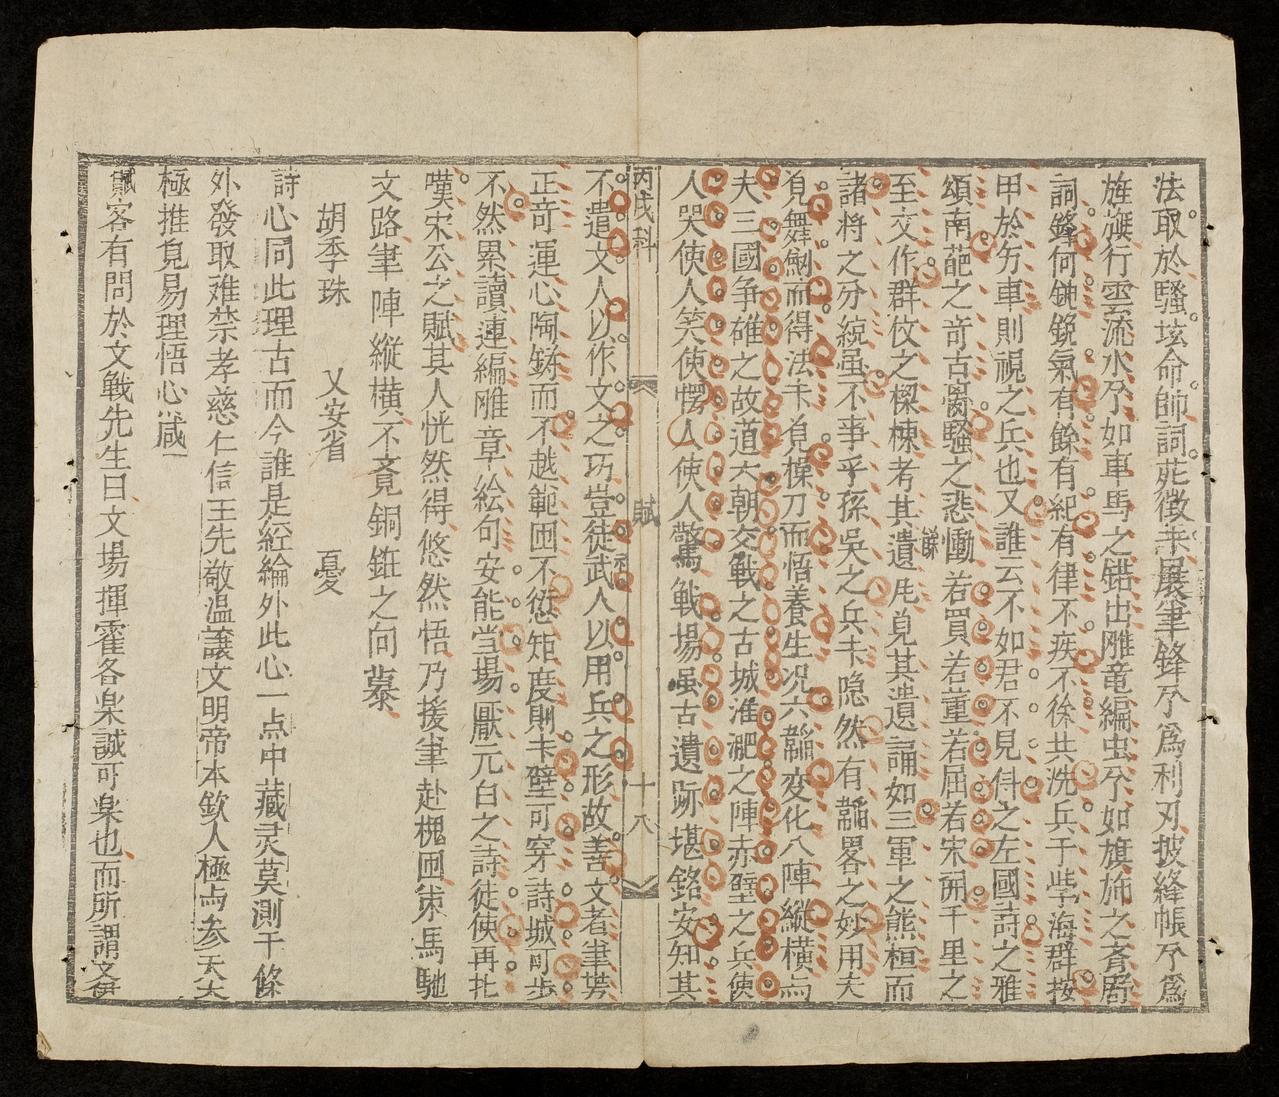 法取於騷坛命師詞苑徵兵展筆鋒尔爲利刃披絳帳尔爲
旌旗行雲流水尔如車馬之錯出雕竜編虫尔如旗旆之斉
詞鋒何鈍銳氣有餘有紀有律不疾不徐共洗兵于学海群按
甲於芳車則視之兵也又誰云不如君不見侍之左國詩之雅
頌南葩之竒古騷之悲慟若買若董若屈若宋闹千里之
至交作群伩之樑棟考其遺凭見其遺誦如三軍之熊桓而
諸将之分統虽不事乎孫吳之兵未隐然有韜畧之妙用夫
見舞劍而得法未見操刀而悟養生况六韜变化八陣縱横
夫三國争雄之故道六朝交戰之古城淮淝之陣赤壁之兵使
人哭使人笑使愕人使人驚戰場虽古遺跡堪銘安知其
丙戌科 賦 十八
不遺文人以作文之巧豈徒武人以用兵之形故善文者筆
正竒運心陶鋳而不越範囬不愆矩度則未壁可穿詩城可步
不然累讀連編雕章絵句安能当場厭元白之詩徒使再
嘆宋公之賦其人恍然得悠然悟乃援筆赴槐囬策馬馳
文路筆陣縱横不竟銅鉦之向暮
胡季珠 乂安省 憂
詩心同此理古而今誰是経綸外此心一点中藏灵莫測千條
外發取难禁孝慈仁信王先敬温讓文明帝本欽人極与参天
極推覓易理悟心箴一
客有問於文戰先生曰文場揮霍各楽誠可楽也而所謂文